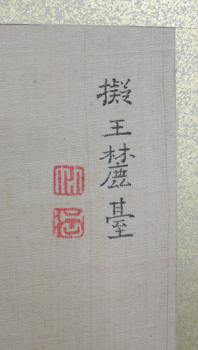 擬王麓臺